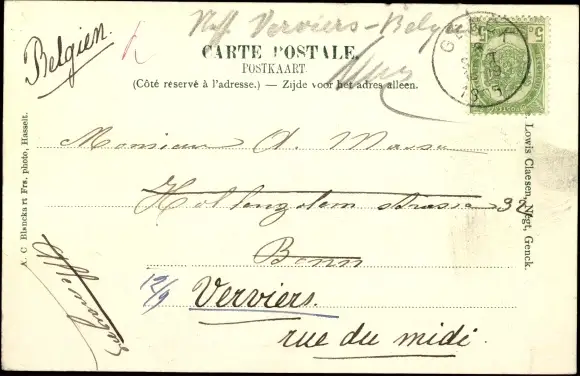 Belgien.
Verviers - Belgien
CARTE POSTALE.
POSTKAART.
(Côté reservé à l'adresse.) — Zijde voor het adres alleen.
Monsieur A. Massau
Hollenzolern strasse 32
Bonn
12/9 Verviers.
rue du midi.
A. C Blanckart Frs, photo, Hasselt.
Lowis Claesen's Vegt, Genck.
5